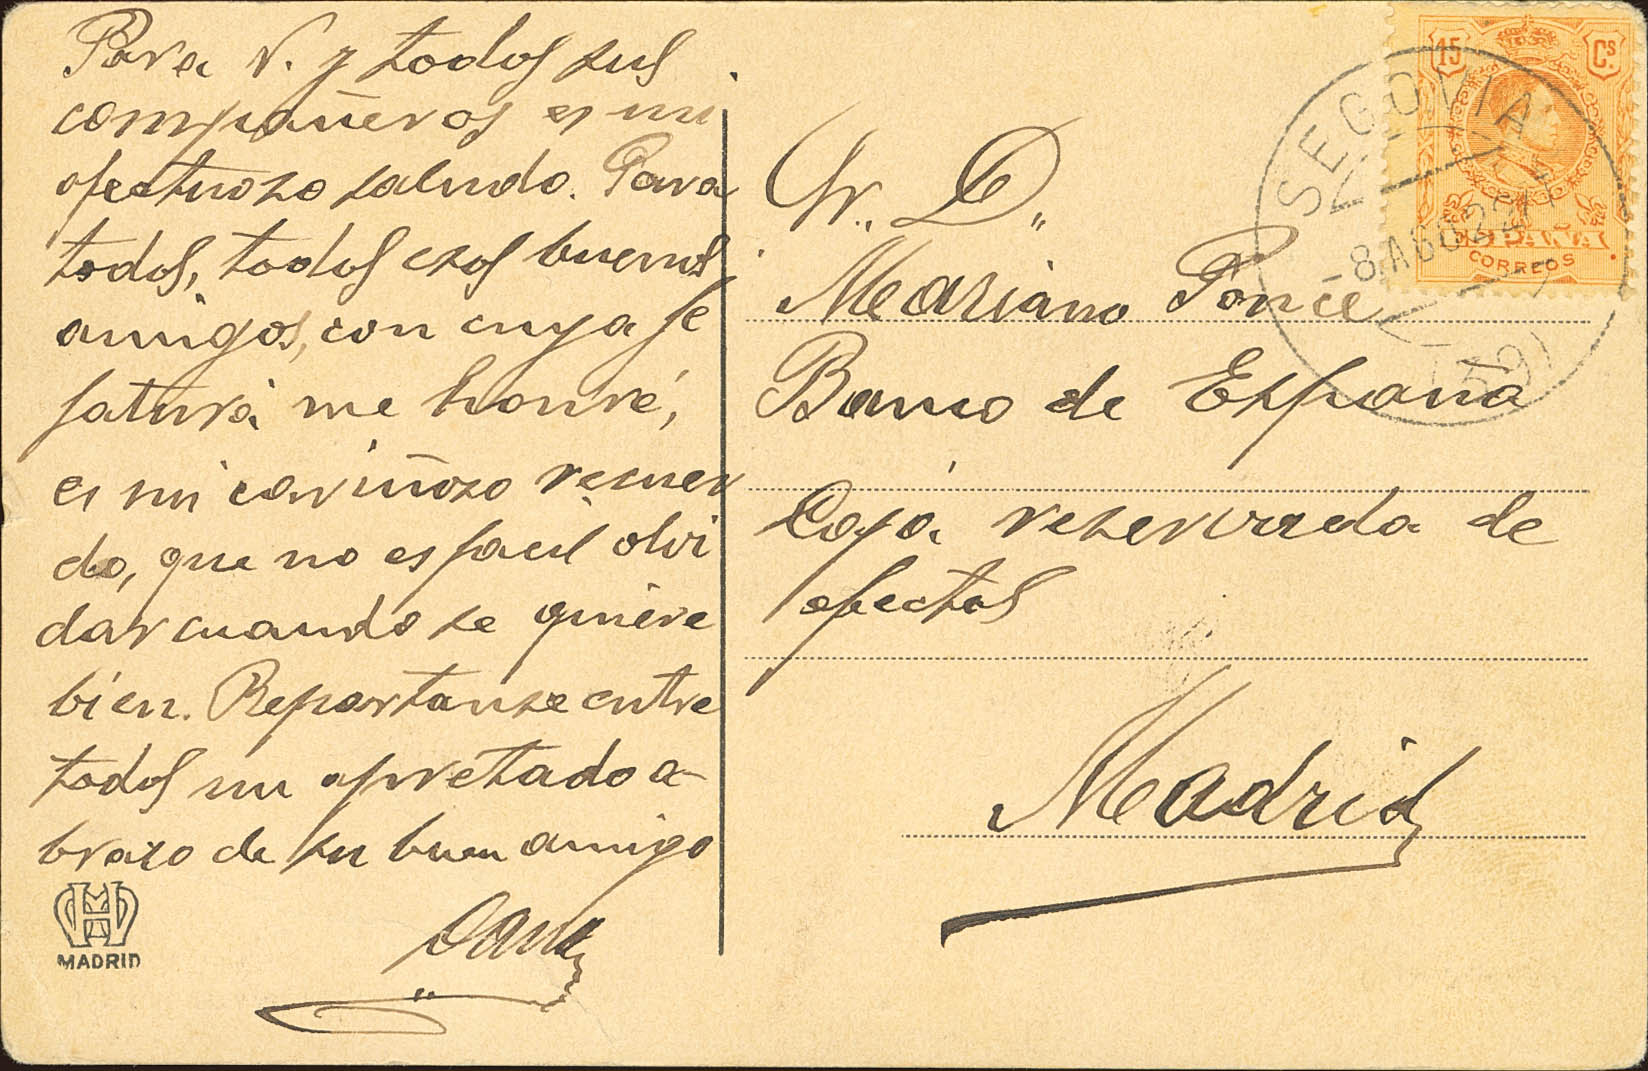 Para V. y todos sus
compañeros es mi
afectuoso saludo. Para
todos, todos esos buenos
amigos, con cuya je
fatura me honré,
es mi cariñoso recuer
do, que no es facil olvi
dar cuando se quiere
bien. Repartanse entre
todos un apretado a-
brazo de su buen amigo
MADRID
Sr. D.
Mariano Ponce
Banco de España
Caja reservada de
efectos
Madrid
15 Cs
ESPAÑA
CORREOS
SEGOVIA
-8 AGO 22